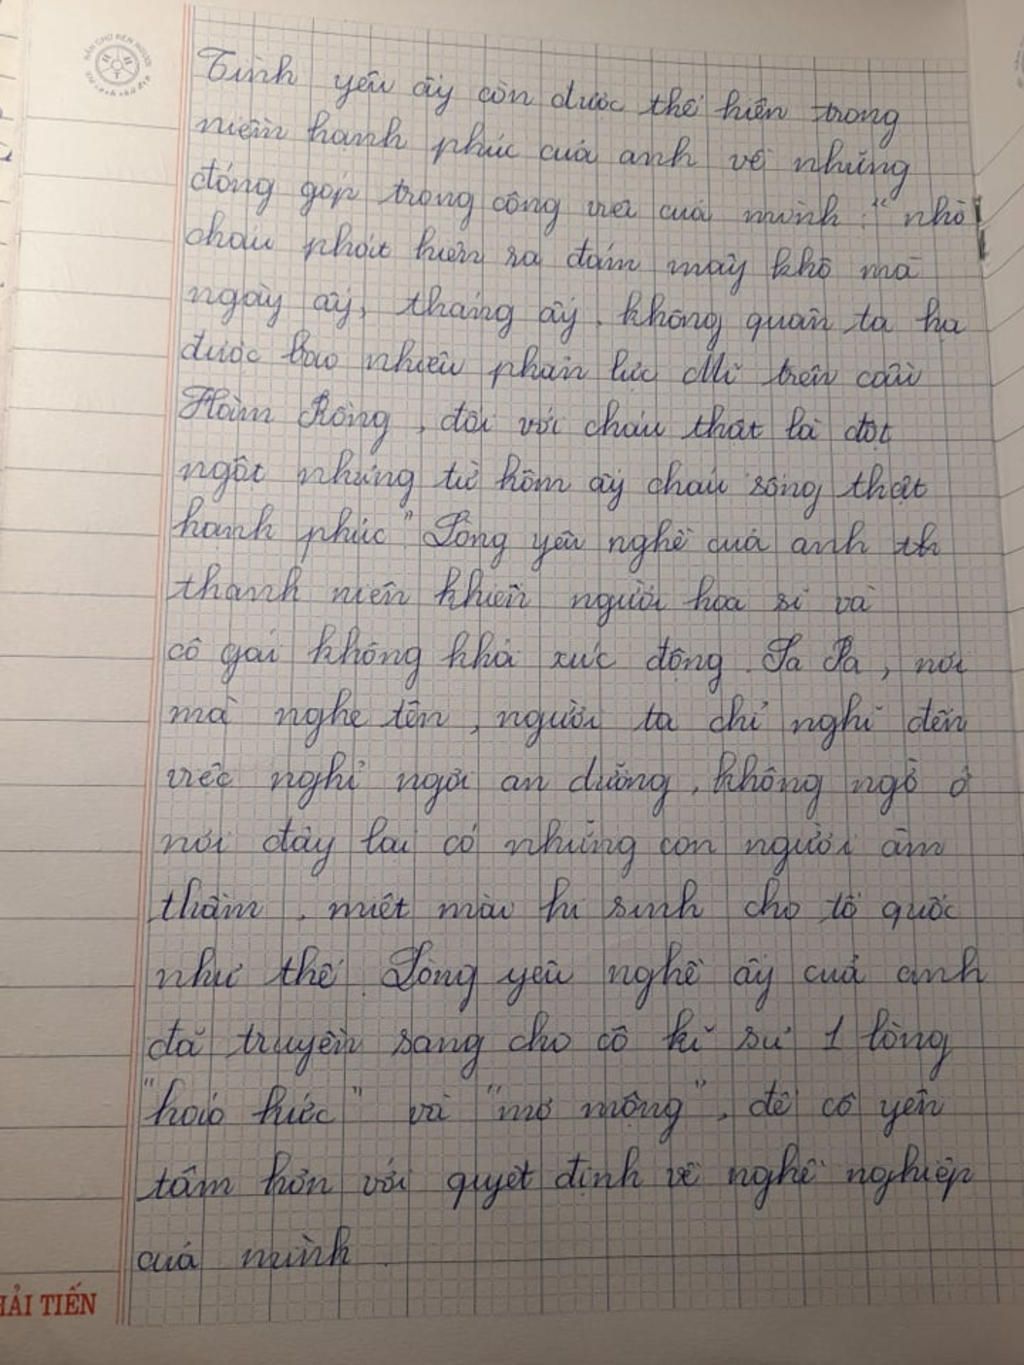 Tình yêu ấy còn được thể hiện trong
niềm hạnh phúc của anh về những
đóng góp trong công việc của mình : " nhờ
cháu phát hiện ra đám mây khô mà
ngày ấy, tháng ấy, không quân ta hạ
được bao nhiêu phản lực Mĩ trên cầu
Hàm Rồng, đối với cháu thật là đột
ngột nhưng từ hôm ấy cháu sống thật
hạnh phúc" Lòng yêu nghề của anh th
thanh niên khiến người họa sĩ và
cô gái không khỏi xúc động. Sa Pa, nơi
mà nghe tên, người ta chỉ nghĩ đến
việc nghỉ ngơi an dưỡng, không ngờ ở
nơi đây lại có những con người âm
thầm, miệt mài hi sinh cho tổ quốc
như thế. Lòng yêu nghề ấy của anh
đã truyền sang cho cô kĩ sư 1 lòng
"háo hức" và "mơ mộng", để cô yên
tâm hơn với quyết định về nghề nghiệp
của mình.
HẢI TIẾN